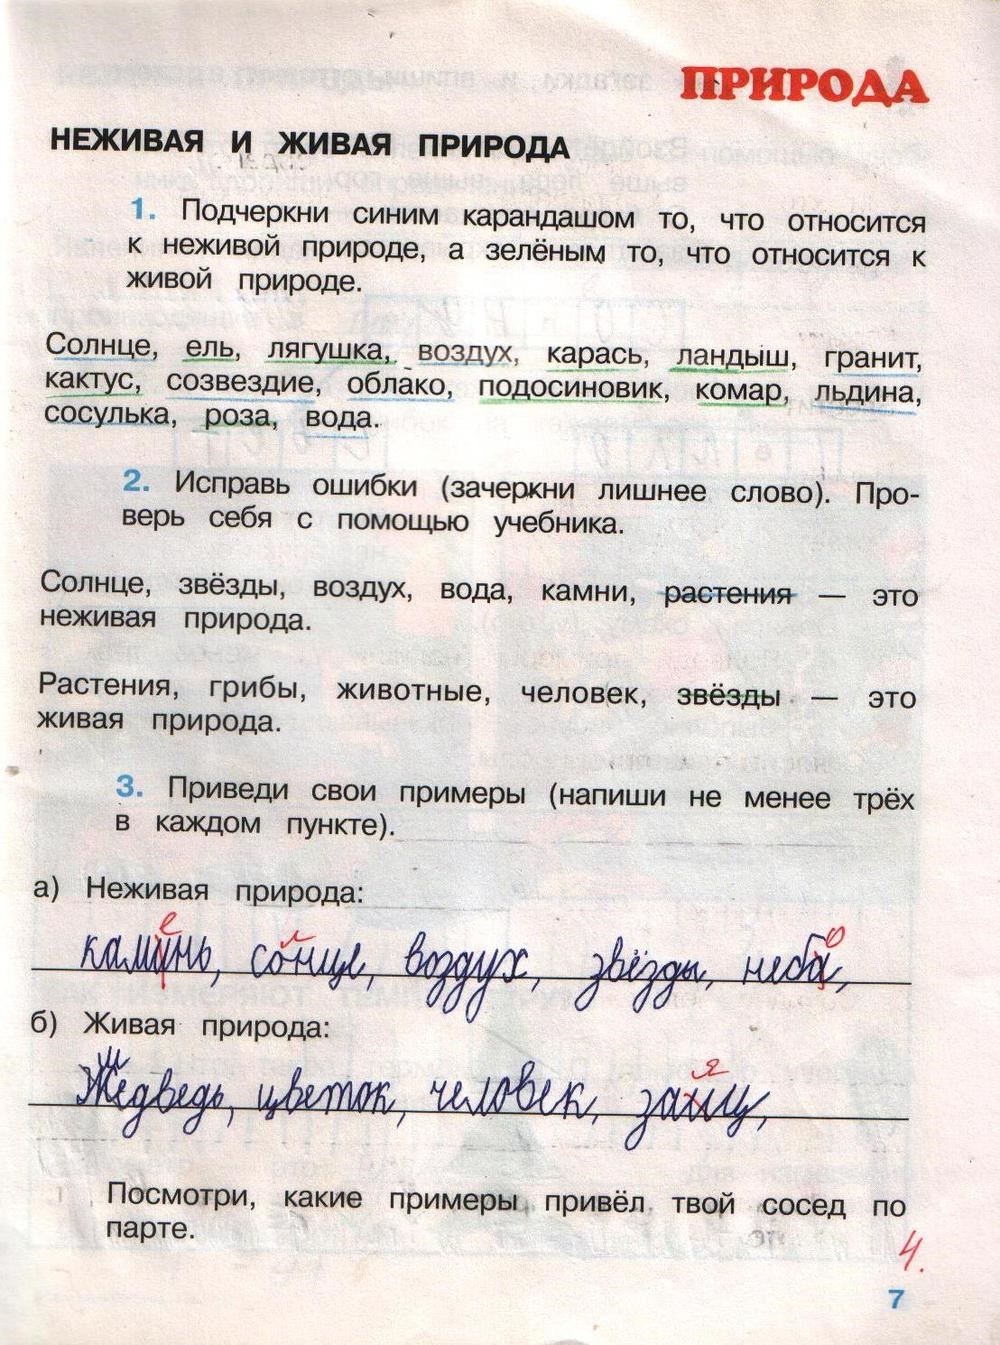 ПРИРОДА
НЕЖИВАЯ И ЖИВАЯ ПРИРОДА
1. Подчеркни синим карандашом то, что относится
к неживой природе, а зелёным то, что относится к
живой природе.
Солнце, ель, лягушка, воздух, карась, ландыш, гранит,
кактус, созвездие, облако, подосиновик, комар, льдина,
сосулька, роза, вода.
2. Исправь ошибки (зачеркни лишнее слово). Про-
верь себя с помощью учебника.
Солнце, звёзды, воздух, вода, камни, растения — это
неживая природа.
Растения, грибы, животные, человек, звёзды — это
живая природа.
3. Приведи свои примеры (напиши не менее трёх
в каждом пункте).
а) Неживая природа:
е л о
каминь, сонце, воздух, звёзды, неба,
б) Живая природа:
я
Медведь, цветок, человек, заиц,
Посмотри, какие примеры привёл твой сосед по
парте.
4.
7